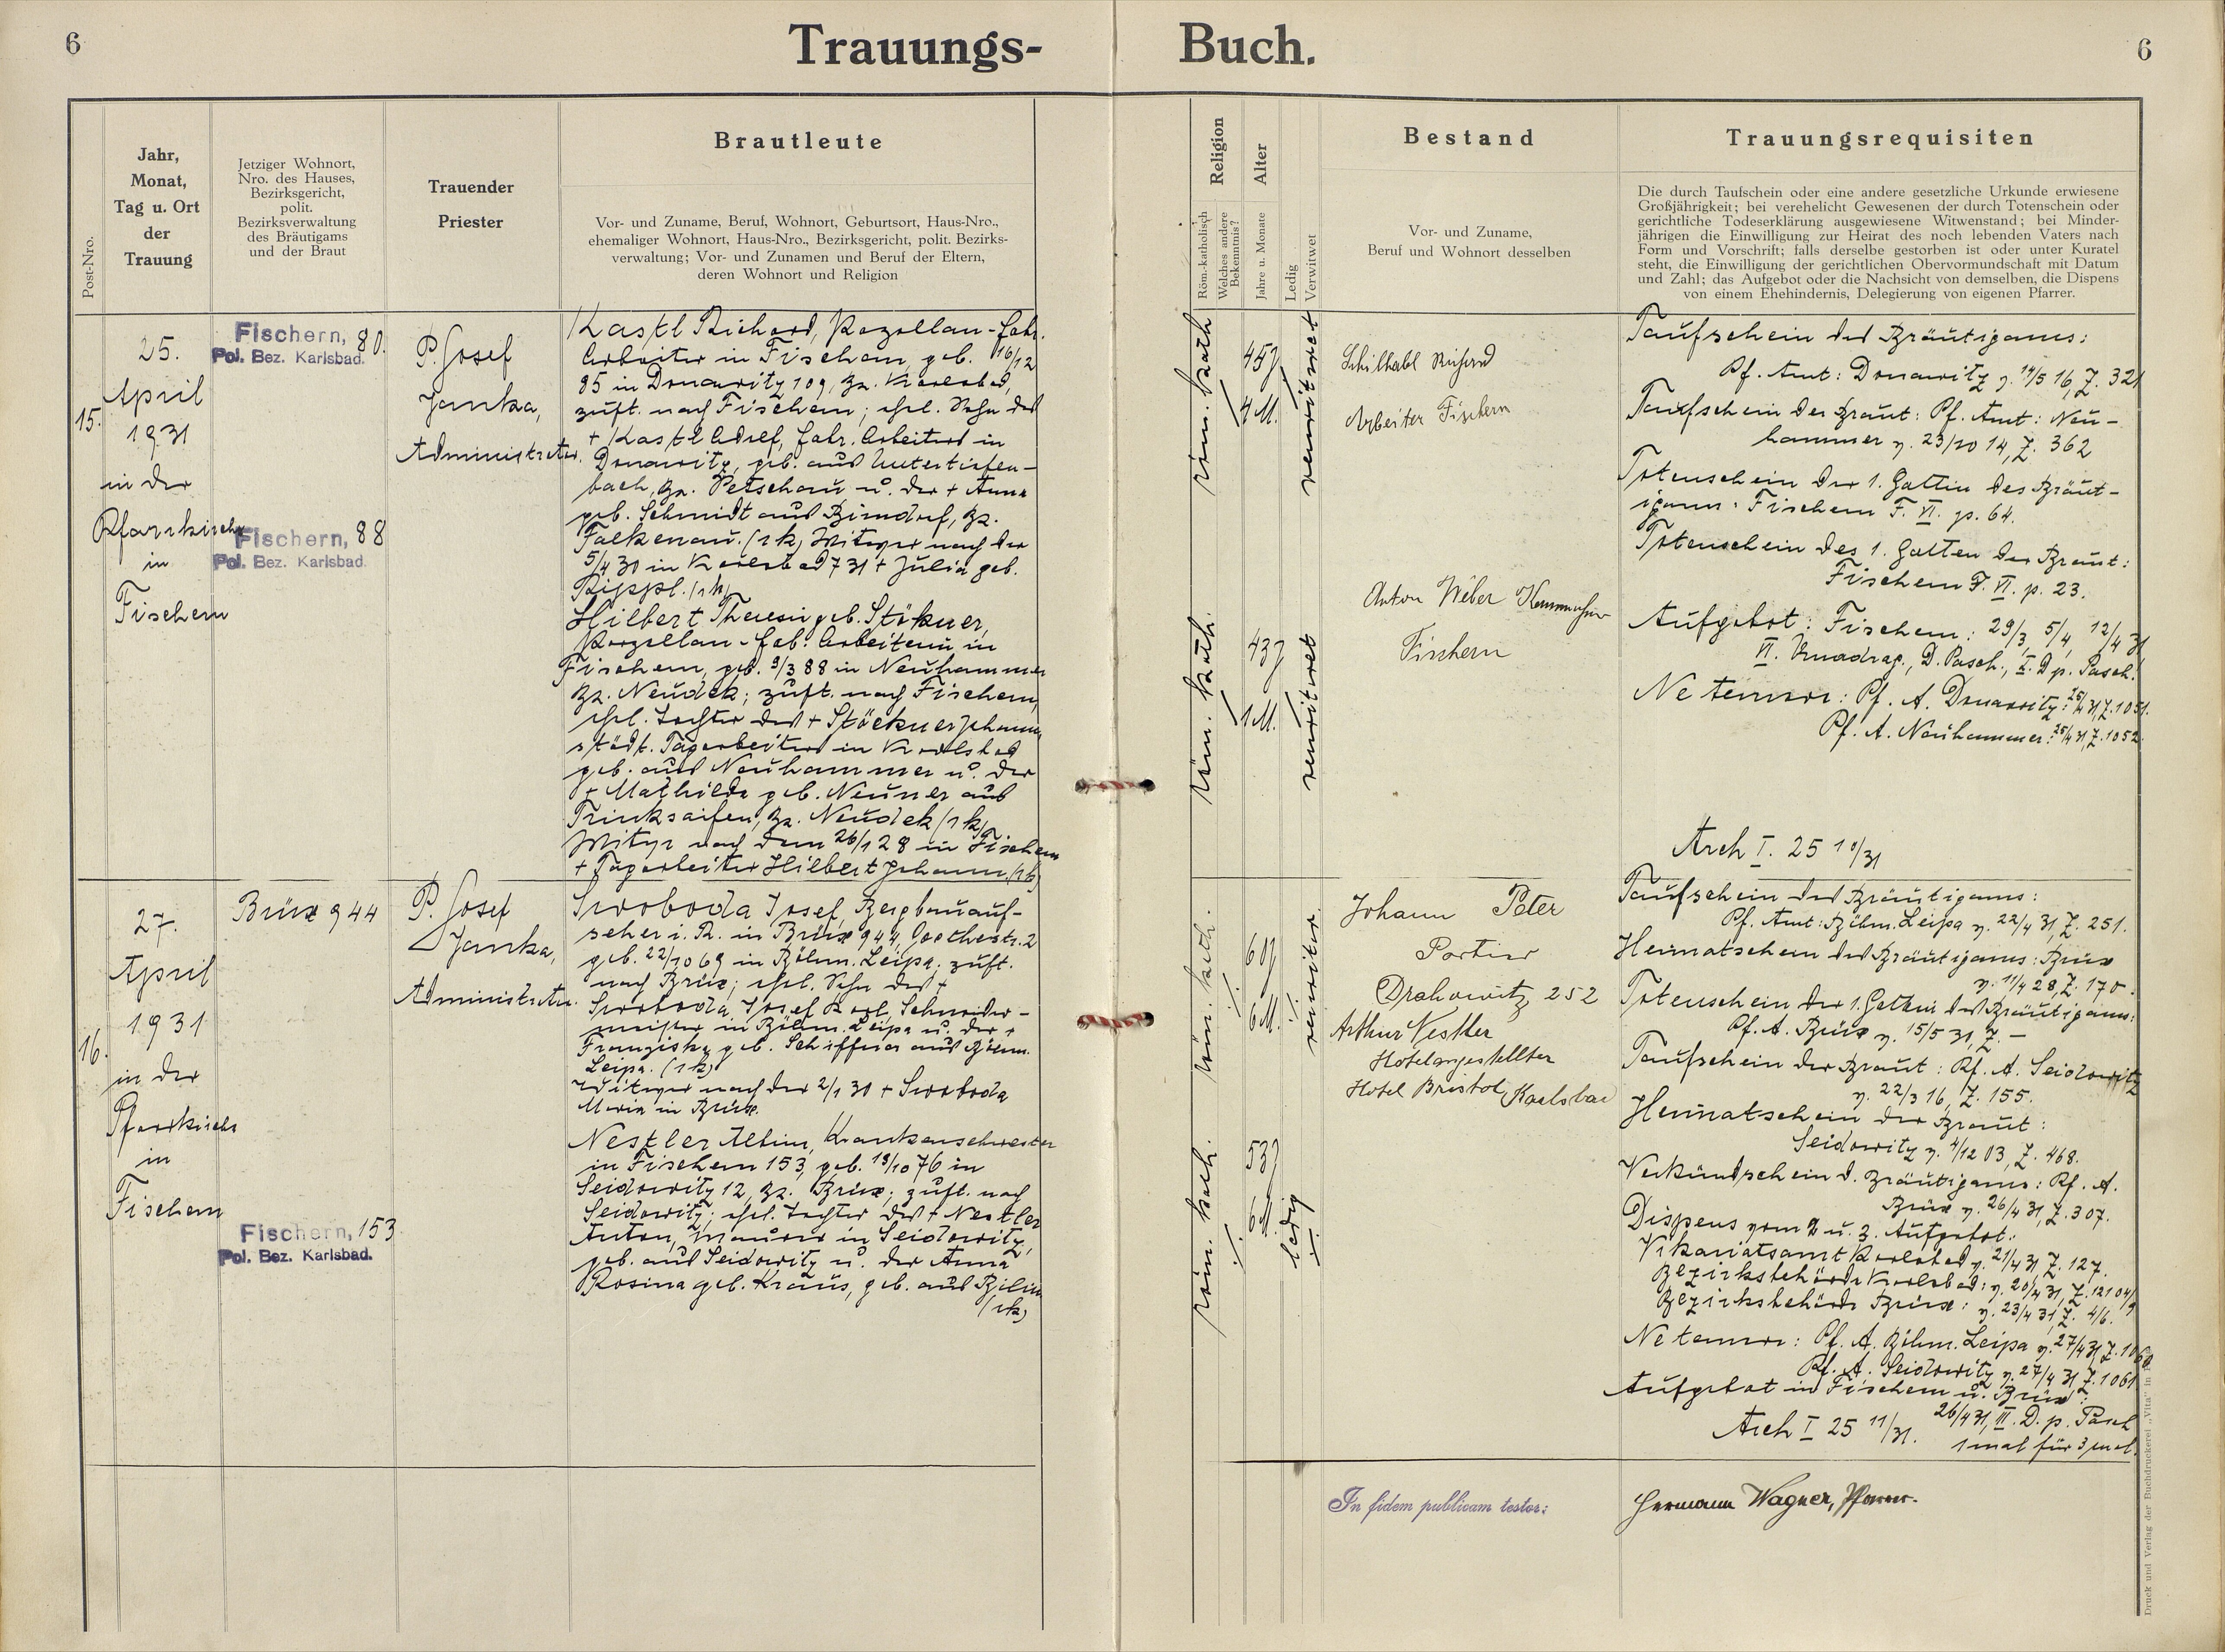 6
Trauungs-
Buch.
6
Post-Nro.
Jahr,
Monat,
Tag u. Ort
der
Trauung
Jetziger Wohnort,
Nro. des Hauses,
Bezirksgericht,
polit.
Bezirksverwaltung
des Bräutigams
und der Braut
Trauender
Priester
Brautleute
Vor- und Zuname, Beruf, Wohnort, Geburtsort, Haus-Nro.,
ehemaliger Wohnort, Haus-Nro., Bezirksgericht, polit. Bezirks-
verwaltung; Vor- und Zunamen und Beruf der Eltern,
deren Wohnort und Religion
Religion
Röm.-katholisch
Welches andere
Bekenntnis?
Alter
Jahre u. Monate
Ledig
Verwitwet
Bestand
Vor- und Zuname,
Beruf und Wohnort desselben
Trauungsrequisiten
Die durch Taufschein oder eine andere gesetzliche Urkunde erwiesene
Großjährigkeit; bei verehelicht Gewesenen der durch Totenschein oder
gerichtliche Todeserklärung ausgewiesene Witwenstand; bei Minder-
jährigen die Einwilligung zur Heirat des noch lebenden Vaters nach
Form und Vorschrift; falls derselbe gestorben ist oder unter Kuratel
steht, die Einwilligung der gerichtlichen Obervormundschaft mit Datum
und Zahl; das Aufgebot oder die Nachsicht von demselben, die Dispens
von einem Ehehindernis, Delegierung von eigenen Pfarrer.
15.
25.
April
1931
in der
Pfarrkirche
in
Fischern
Fischern, 80.
Pol. Bez. Karlsbad.
Fischern, 88
Pol. Bez. Karlsbad.
P. Josef
Janka,
Administrator.
Kastl Richard, Porzellan-fabr.
Arbeiter in Fischern, geb. 16/12
85 in Donawitz 109, Bz. Karlsbad,
zust. nach Fischern; ehel. Sohn des
+ Kastl Adolf, fabr. Arbeiters in
Donawitz, geb. aus Untertiefen-
bach, Bz. Petschau u. der + Anna
geb. Schmidt aus Birndorf, Bz.
Falkenau. (rk) Witwer nach der
5/4 30 in Karlsbad 731 + Julia geb.
Rippl. (rk)
Hilbert Theresia geb. Stökner,
Porzellan-fab. Arbeiterin in
Fischern, geb. 9/3 88 in Neuhammer
Bz. Neudek; zust. nach Fischern,
ehel. Tochter des + Stöckner Johann,
städt. Tagarbeiters in Karlsbad
geb. aus Neuhammer u. der
+ Mathilde geb. Neuner aus
Trinksaifen, Bz. Neudek (rk)
Witwe nach dem 26/1 28 in Fischern
+ Tagarbeiter Hilbert Johann. (rk)
röm. kath
45 J
4 M.
verwitwet
röm. kath.
43 J
1 M.
verwitwet
Schilhabl Richard
Arbeiter Fischern
Anton Weber
Fischern
Taufschein des Bräutigams:
Pf. Amt: Donawitz v. 14/5 16, Z. 321
Taufschein der Braut: Pf. Amt: Neu-
hammer v. 23/10 14, Z. 362
Totenschein der 1. Gattin des Bräut-
igams: Fischern F. VI. p. 64.
Totenschein des 1. Gatten der Braut:
Fischern F. VI. p. 23.
Aufgebot: Fischern: 29/3, 5/4, 12/4 31
VI. Quadrag., D. Pasch., I. D p. Pasch.
Ne temere: Pf. A. Donawitz: 25/4 31, Z. 1051.
Pf. A. Neuhammer: 25/4 31, Z. 1052.
Arch I. 25 10/31
16.
27.
April
1931
in der
Pfarrkirche
in
Fischern
Brüx 944
Fischern, 153
Pol. Bez. Karlsbad.
P. Josef
Janka,
Administrator.
Swoboda Josef, Bergbauauf-
seher i. R. in Brüx 944, Goethestr. 2
geb. 22/10 69 in Böhm. Leipa; zust.
nach Brüx; ehel. Sohn des +
Swoboda Josef Karl, Schneider-
meister in Böhm. Leipa u. der +
Franziska geb. Schiffner aus Böhm.
Leipa. (rk)
Witwer nach der 2/1 30 + Swoboda
Maria in Brüx.
Nestler Albine, Krankenschwester
in Fischern 153, geb. 18/10 76 in
Seidowitz 12, Bz. Brüx; zust. nach
Seidowitz; ehel. Tochter des + Nestler
Anton, Maurer in Seidowitz,
geb. aus Seidowitz u. der Anna
Rosina geb. Kraus, geb. aus Bilin
(rk)
röm. kath.
61 J
6 M.
verwitw.
röm. kath.
53 J
6 M.
ledig
Johann Peter
Portier
Drahowitz 252
Arthur Nestler
Hotelangestellter
Hotel Bristol, Karlsbad
Taufschein des Bräutigams:
Pf. Amt: Böhm. Leipa v. 22/4 31, Z. 251.
Heimatschein des Bräutigams: Brüx
v. 11/4 28, Z. 170.
Totenschein der 1. Gattin des Bräutigams:
Pf. A. Brüx v. 15/5 31, Z. —
Taufschein der Braut: Pf. A. Seidowitz
v. 22/3 16, Z. 155.
Heimatschein der Braut:
Seidowitz v. 4/12 03, Z. 468.
Verkündschein d. Bräutigams: Pf. A.
Brüx v. 26/4 31, Z. 307.
Dispens vom 2. u. 3. Aufgebot:
Vikariatsamt Karlsbad v. 21/4 31, Z. 127.
Bezirksbehörde Karlsbad: v. 20/4 31, Z. 12104/9
Bezirksbehörde Brüx: v. 23/4 31, Z. 4/6.
Ne temere: Pf. A. Böhm. Leipa v. 27/4 31, Z. 1060
Pf. A. Seidowitz v. 27/4 31, Z. 1061
Aufgebot in Fischern u. Brüx:
26/4 31, III. D. p. Pasch
1 mal für 3 mal.
Arch I 25 11/31.
In fidem publicam testor:
Hermann Wagner, Pfarrer.
Druck und Verlag der Buchdruckerei „Vita" in